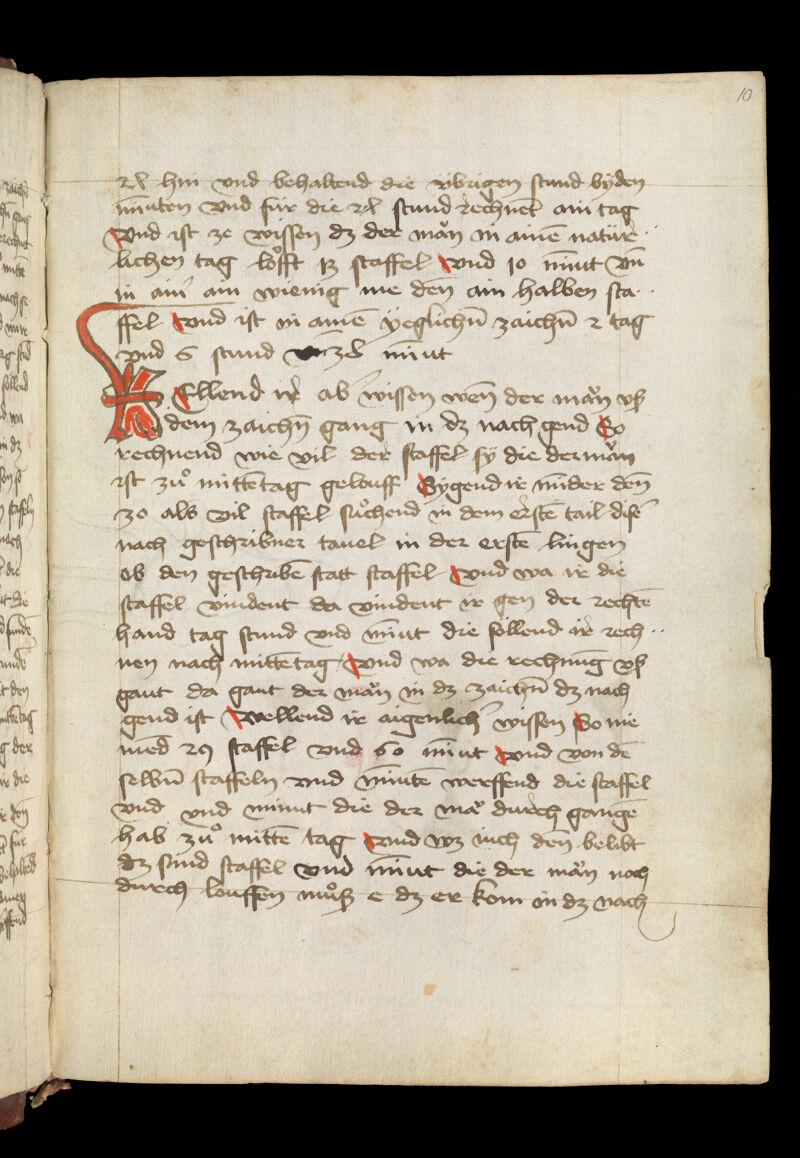 10
24 hin vnd behaltend die vbrigen stund byden
minuten vnd für die 24 stund rechnet ain tag
Vnd ist ze wissen dz der mān in ainē natur
lichen tag lofft 13 staffel vnd 10 minut vn̄
in ain wienig me den̄ ain halben sta
ffel Vnd ist in ainē yeglichn̄ zaichn̄ 2 tag
vnd 6 stund minut
Wellend ir ab wissen wen̄ der mān vß
dem zaichn̄ gang in dz nach gend So
rechnend wie vil der staffel sy die der mān
ist zů mittētag gelouff Sygend ir minder den̄
30 als vil staffel sůchend in dem erstē tail diser
nach geschribner tauel in der erstē lingen
ob den geschribē statt staffel Vnd wa ir die
staffel vindent da vindent ir gen der rechtē
hand tag stund vnd minut die sollend ir rech
nen nach mittētag Vnd wa die rechnung vß
gant da gant der mān in dz zaichn̄ dz nach
gend ist Wellend ir aigenlich wissen So nie
med 29 staffel vnd 60 minut Vnd von dē
selbn̄ staffeln vnd minutē werffend die staffel
vnd vnd minut die der mā durch gangē
hab zů mittē tag Vnd wz üch den̄ belibt
dz sind staffel vnd minut die der mān noch
durch louffen můß e dz er kom in dz nach